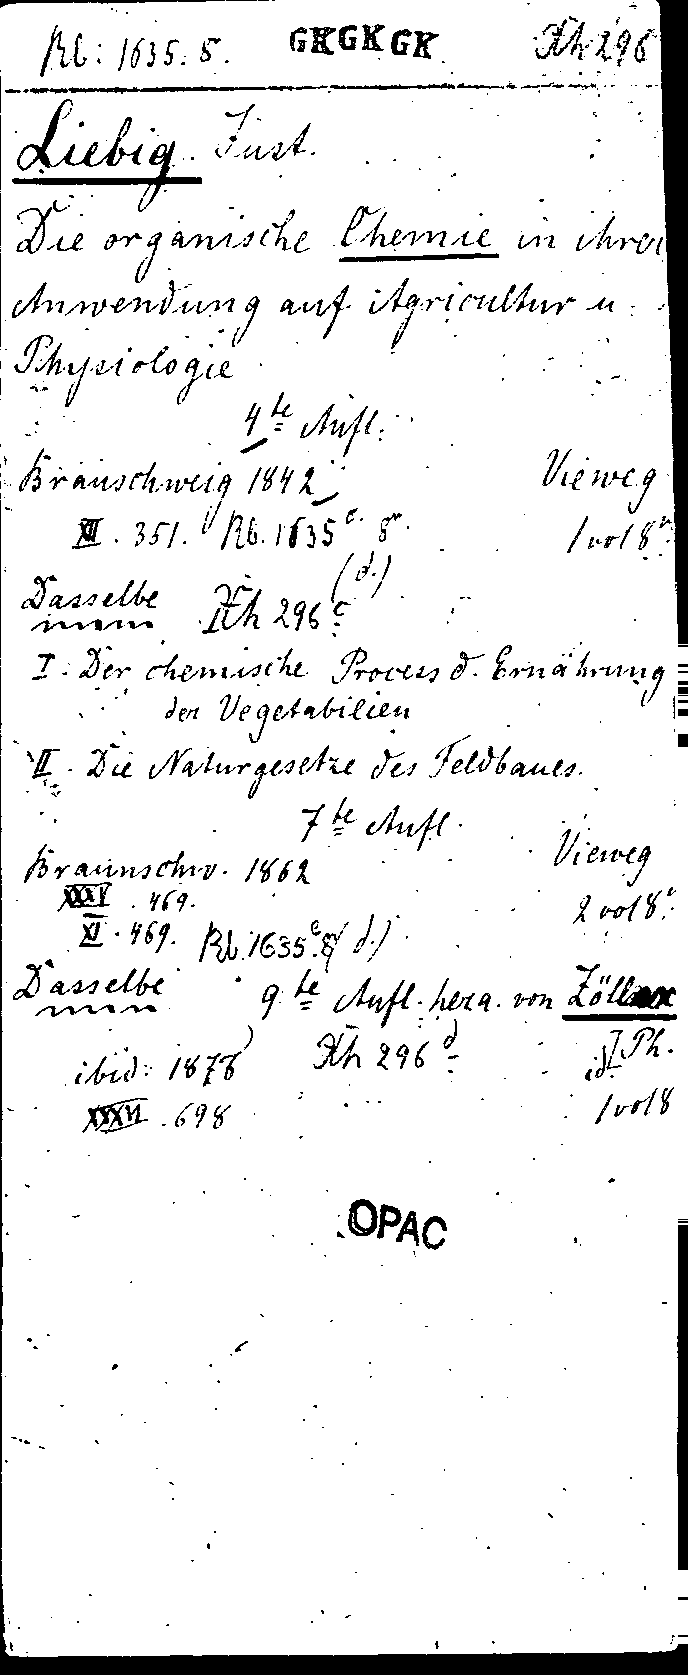 Rb: 1635. 8. GKGKGK Xh 296
Liebig. Just.
Die organische Chemie in ihrer
Anwendung auf Agricultur u.
Physiologie
4te Aufl.
Braunschweig 1842 Vieweg
XII. 351. Rb. 1635 c. 8° 1 vol 8°
(d.)
Dasselbe Xh 296 c
I. Der chemische Process d. Ernährung
der Vegetabilien
II. Die Naturgesetze des Feldbaues.
7te Aufl.
Braunschw. 1862 Vieweg
XXXV. 469. 2 vol 8°
XI. 469. Rb. 1635. 8 (d.)
Dasselbe 9te Aufl. herg. von Zöllner
ibid: 1876 Xh 296 d Ph.
XXXVI. 698 id. 1 vol 8
OPAC